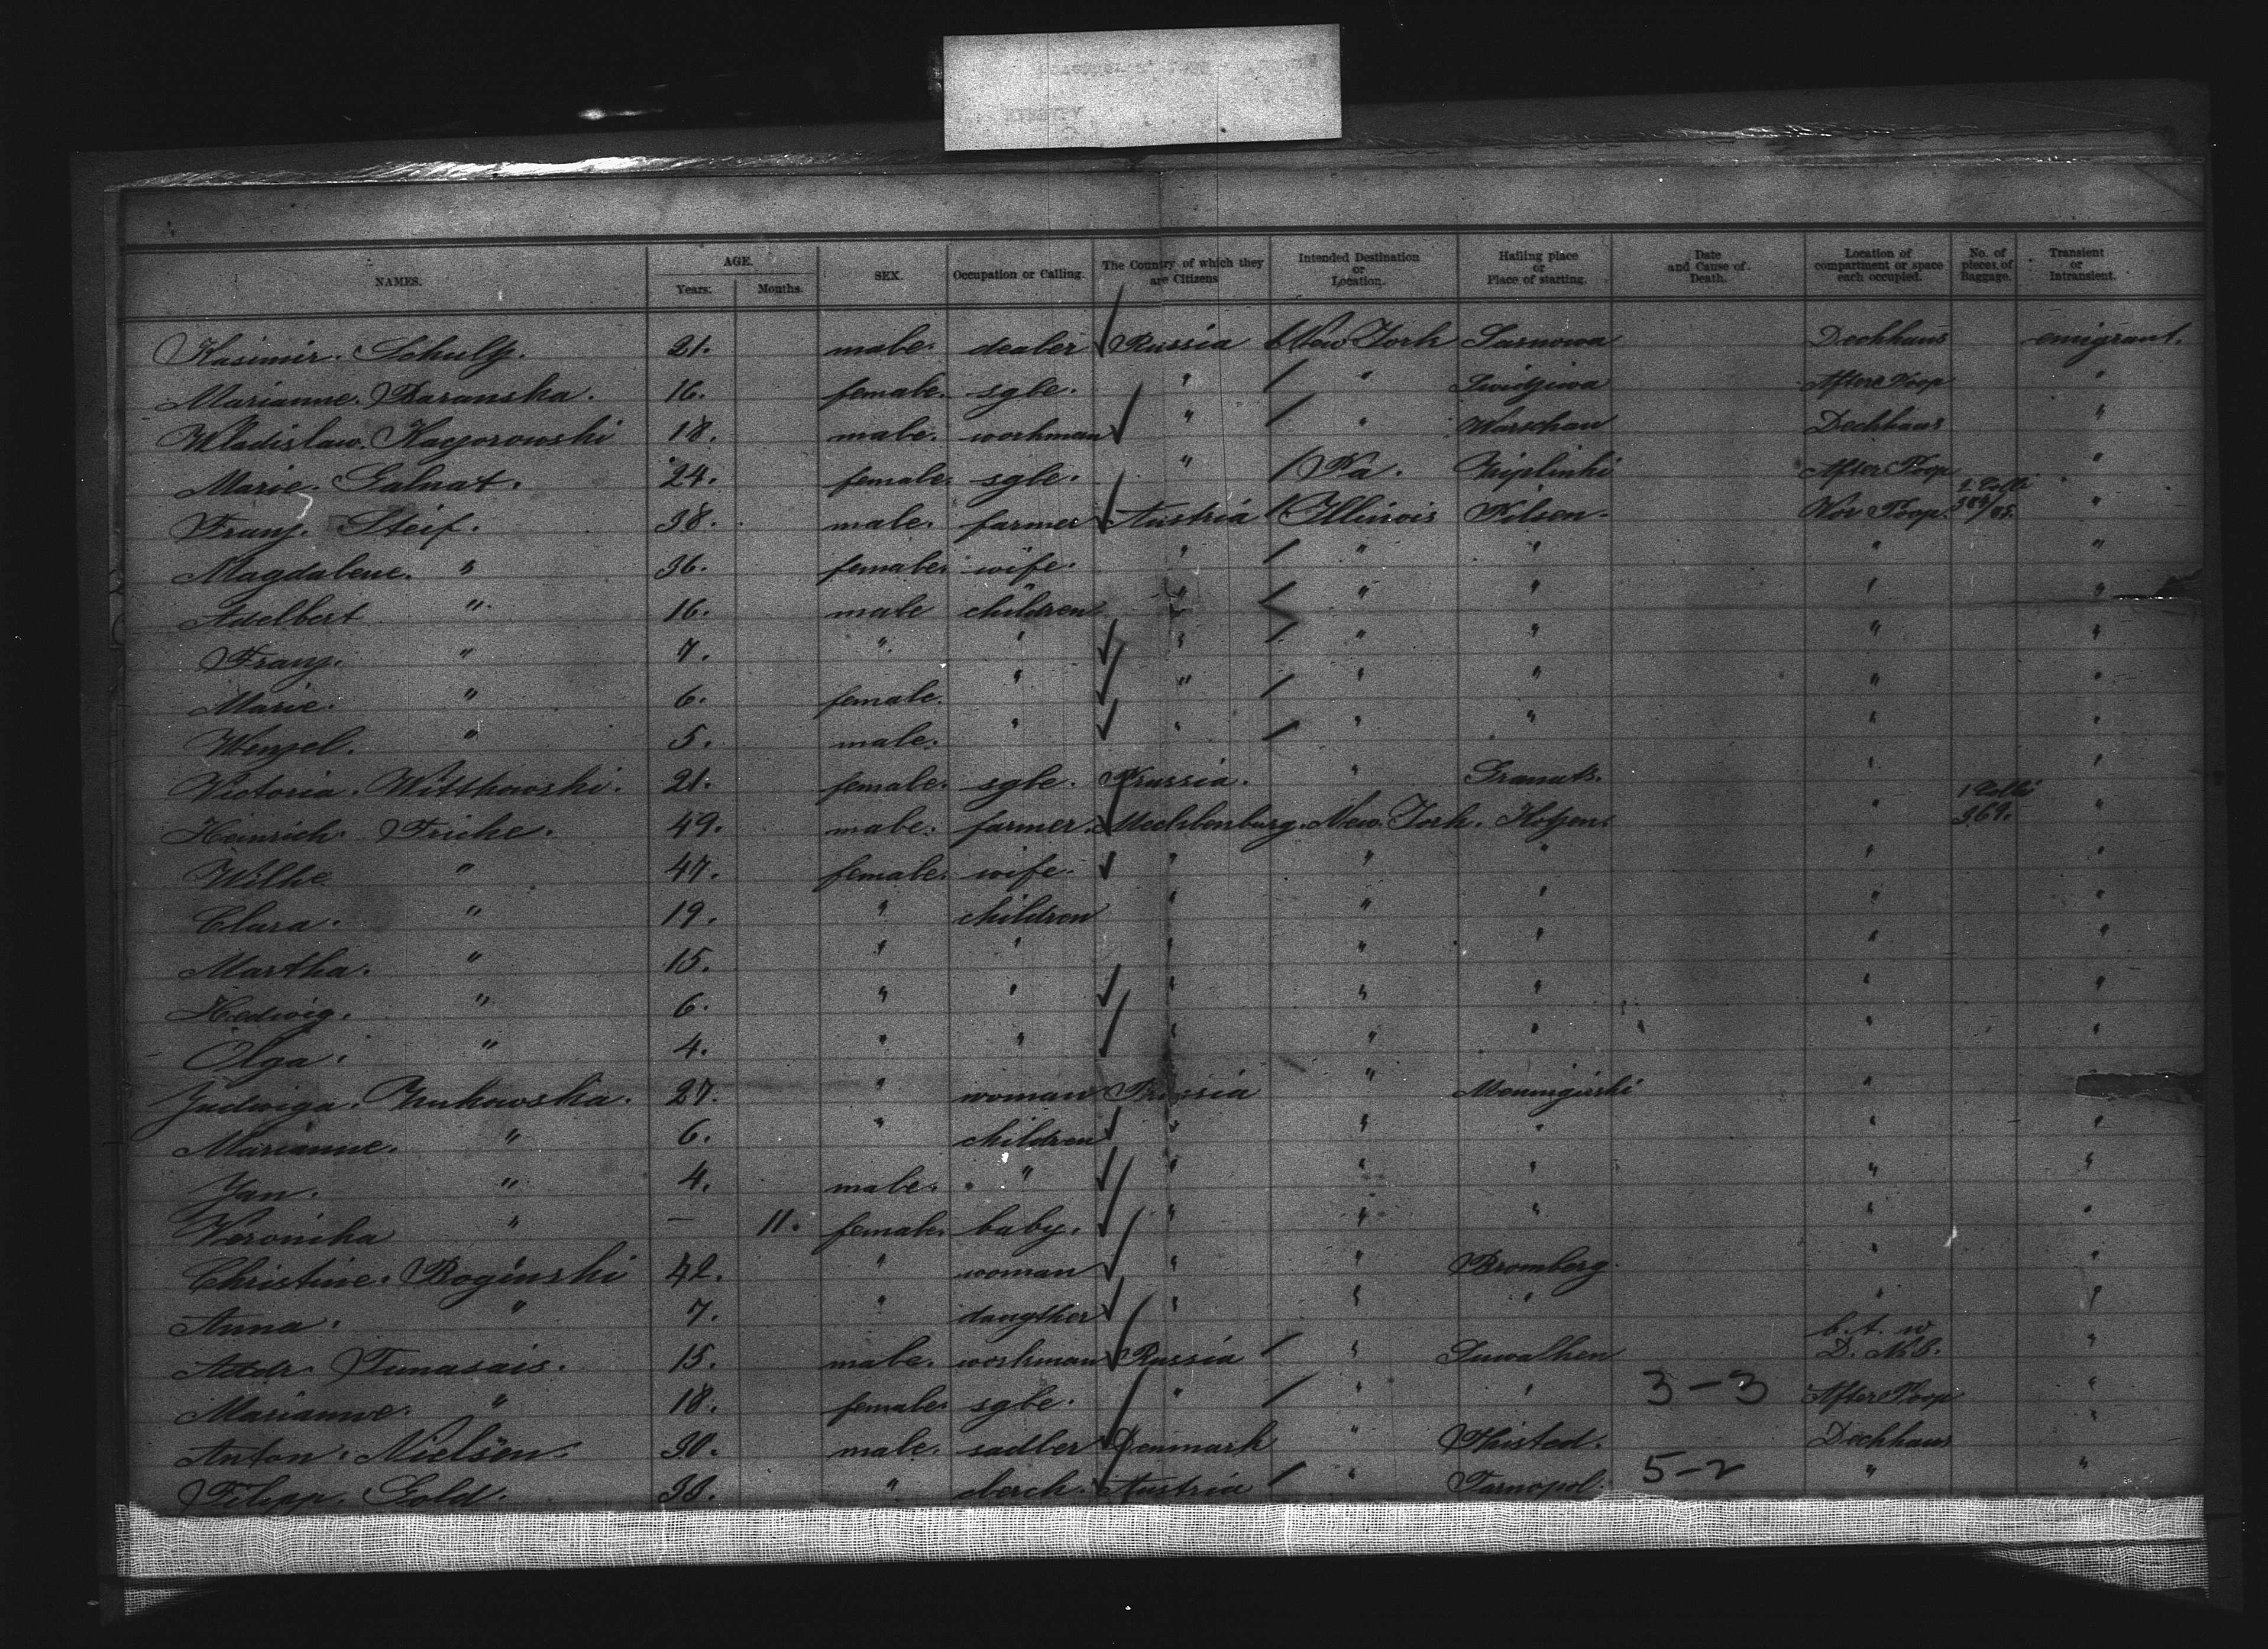 NAMES. AGE. Years. Months. SEX. Occupation or Calling. The Country of which they are Citizens Intended Destination or Location. Hailing place or Place of starting. Date and Cause of Death. Location of compartment or space each occupied. No. of pieces of Baggage. Transient or Intransient.
Kasimir. Schulz. 21. male. dealer Russia New York Sarnowa Deckhaus emigrant.
Marianne. Baranska. 16. female. sgle. " " After Poop "
Wladislaw. Kaczorowski 18. male. workman " " Warschau Deckhaus "
Marie. Galnat. 24. female. sgle. " Pa. After Poop "
Franz. Steif. 38. male. farmer Austria Illinois Pilsen. Vor Poop. "
Magdalene. " 36. female. wife. " " " " "
Adelbert " 16. male children " " " " "
Franz. " 7. " " " " " " "
Marie. " 6. female. " " " " " "
Wenzel. " 5. male. " " " " " "
Victoria. Wittkowski. 21. female. sgle. Prussia. " " "
Heinrich. Fricke. 49. male. farmer. Mecklenburg. New York. " 369. "
Wilhe " 47. female. wife. " " " " "
Clara. " 19. " children " " " " "
Martha. " 15. " " " " " " "
Hedwig. " 6. " " " " " " "
Olga. " 4. " " " " " " "
Judwiga. Zukowska. 27. " woman " "
Marianne. " 6. " children " " " " "
Jan. " 4. male. " " " " " "
Veronika " – 11. female. baby. " " " " "
Christine. Boginski 42. " woman " " Bromberg. " "
Anna. " 7. " daugther " " " " "
15. male. workman Russia " Suwalken "
Marianne. " 18. female. sgle. " " " 3-3 After Poop "
Anton. Nielsen. 30. male. sadler Denmark " Thisted. Deckhaus "
Filipp. Gold. 38. " Austria " Tarnopol. 5-2 " "